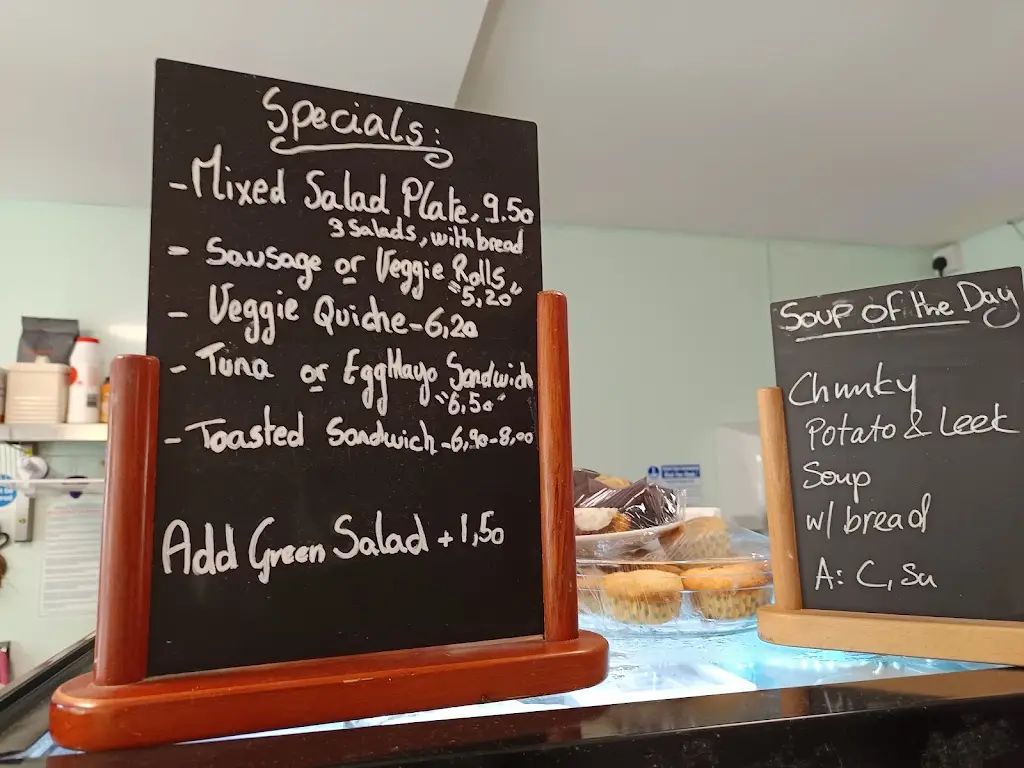 Specials:
- Mixed Salad Plate. 9.50
3 Salads, with bread
- Sausage or Veggie Rolls
"5,20"
- Veggie Quiche - 6,20
- Tuna or EggMayo Sandwich
"6,50"
- Toasted Sandwich - 6,90 - 8,00
Add Green Salad + 1,50
Soup of the Day
Chunky
Potato & Leek
Soup
w/ bread
A: C, Su